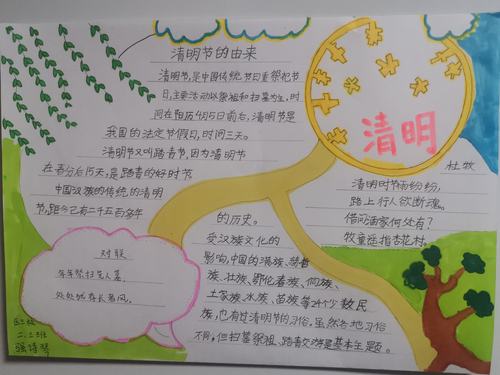 清明节的由来
清明节,是中国传统节日重祭祀节
日,主要活动以祭祖和扫墓为主,时
间在阳历4月5日前后,清明节是
我国的法定节假日,时间三天。
清明节又叫踏青节,因为清明节
在春分后历天,是踏青的好时节
中国汉族的传统的清明
节,距今已有二千五百多年
的历史。
受汉族文化的
影响,中国的满族、赫哲
族、壮族、鄂伦春族、侗族、
土家族、水族、苗族等24个少数民
族,也有过清明节的习俗。虽然各地习俗
不同,但扫墓祭祖、踏青交游是基本主题。
清明
杜牧
清明时节雨纷纷,
路上行人欲断魂。
借问酒家何处有?
牧童遥指杏花村。
对联
年年祭扫先人墓,
处处
二.三班